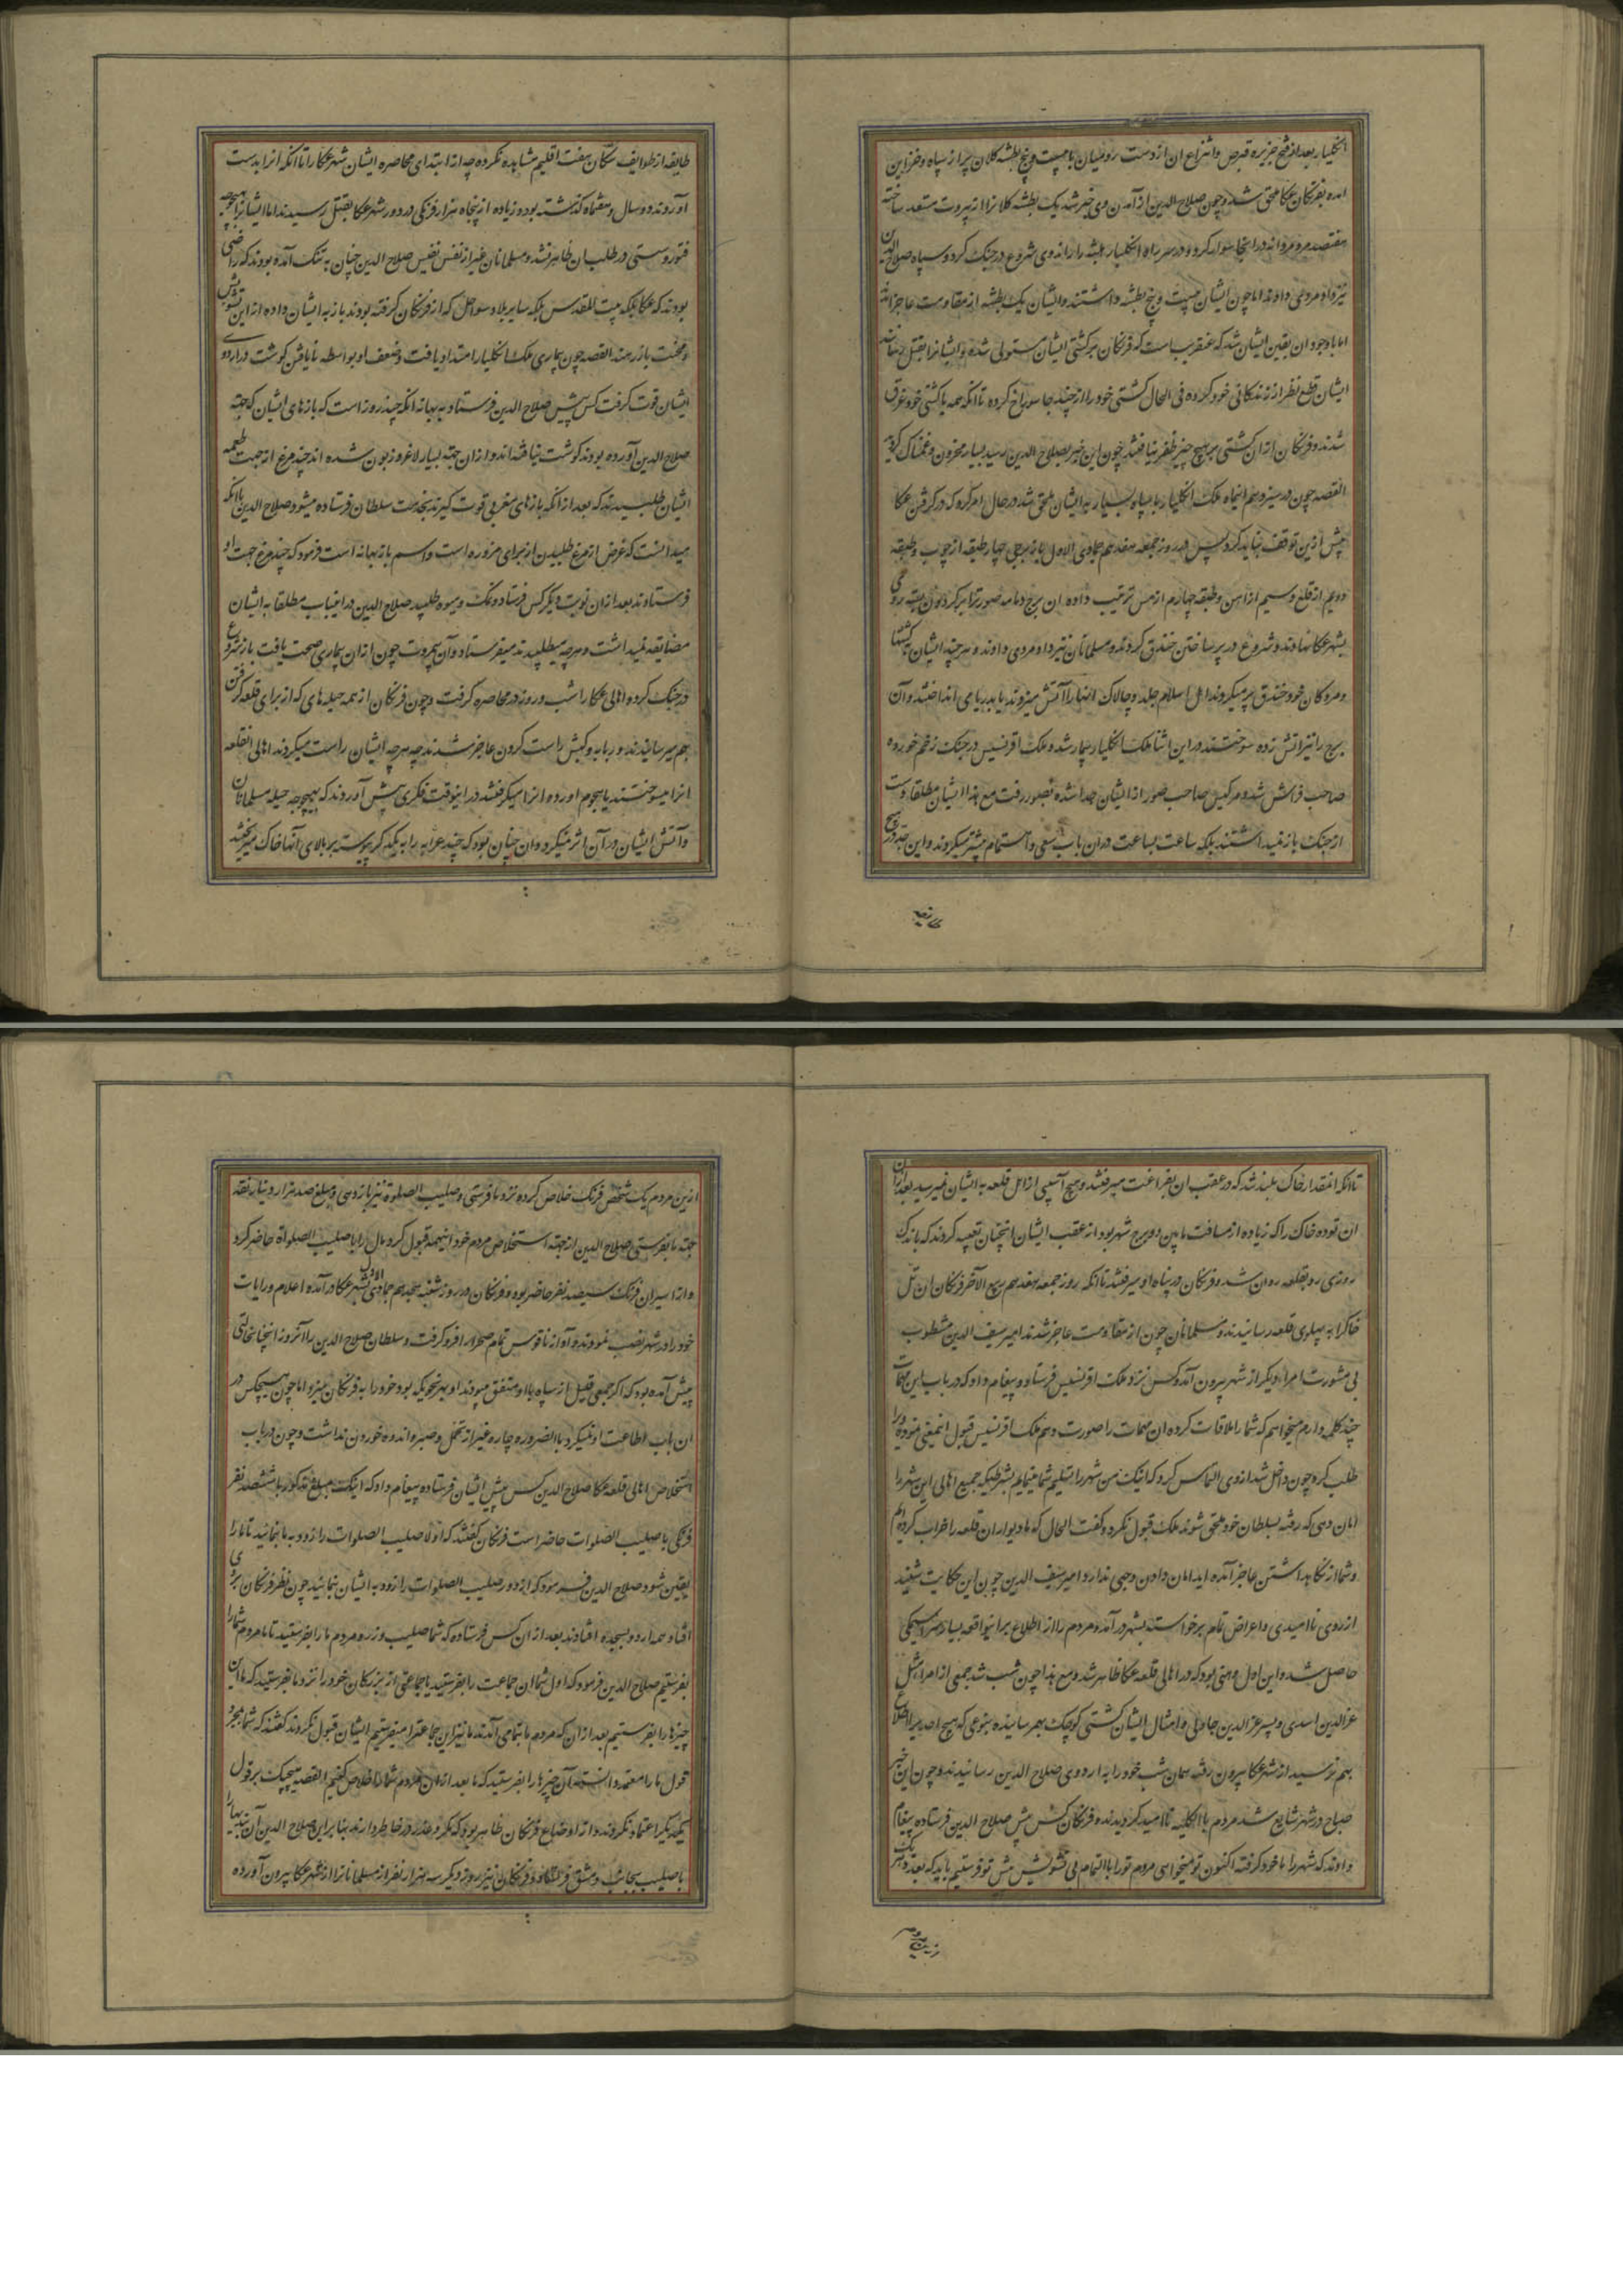 انکلیار بعد از فتح جزیره قبرص و انتزاع ان از دست رومیان با بیست و پنج بطشه کلان پر از سپاه و خزاین
امده بفرنکان عکا ملحق شد و چون صلاح الدین از آمدن وی خبر شد یک بطشه کلانرا از بیروت مستعد ساخته
هفتصد مرد مردانه در انجا سوار کرد و در سر راه انکلیار بطشه را راند وی شروع در جنک کرد و سپاه صلاح الدین
نیز داد مردمی دادند اما چون ایشان بیست و پنج بطشه داشتند و ایشان یک بطشه از مقاومت عاجز امدند
اما با وجود ان یقین ایشان شد که عنقریب است که فرنکان بر کشتی ایشان مستولی شده و ایشانرا بقتل رسانند
ایشان قطع نظر از زندکانی خود کرده فی الحال کشتی خود را از چند جا سوراخ کرده تا انکه همه با کشتی خود غرق
شدند و فرنکان از ان کشتی بر هیچ چیز ظفر نیافتند چون این خبر بصلاح الدین رسید بسیار محزون و غمناک کردید
القصه چون در سیزدهم اینماه ملک انکلیار با سپاه بسیار به ایشان ملحق شد در حال امر کرد که در کرفتن عکا
پیش ازین توقف نباید کرد پس در روز جمعه هفدهم جمادی الاول باز برجی چهار طبقه از چوب و طبقه
دویم از قلع و سیم از اهن و طبقه چهارم از مس ترتیب داده ان برج دبابه صورترا بر کردون بسته روی
بشهر عکا نهادند و شروع در پر ساختن خندق کردند و مسلمانان نیز داد مردی دادند و هر چند ایشان کشتها
و مردکان خود خندق پر میکردند اهل اسلام جلد و چالاک انها را آتش میزدند یا بدریا می انداختند و آن
برج را نیز اتش زده سوختند در این اثنا ملک انکلیار بیمار شد و ملک افرنسیس در جنک زخم خورده
صاحب فراش شد و مرکیس صاحب صور از ایشان جدا شده بصور رفت مع هذا ایشان مطلقا دست
از جنک باز نمیداشتند بلکه ساعت بساعت در ان باب سعی و اهتمام بیشتر میکردند و این جد در هیچ
طایفه از طوایف سکان هفت اقلیم مشاهده نکرده چه از ابتدای محاصره ایشان شهر عکا را تا انکه انرا بدست
آوردند دو سال و هفتماه کذشته بود و زیاده از پنجاه هزار فرنکی در دور شهر عکا بقتل رسیدند اما ایشانرا بهیچوجه
فتور و سستی در طلب ان ظاهر نشد و مسلمانان غیر از نفس نفیس صلاح الدین چنان به تنک آمده بودند که راضی
بودند که عکا بلکه بیت المقدس بلکه سایر بلاد سواحل که از فرنکان کرفته بودند باز به ایشان داده از این تشویش
و محنت باز رهند القصه چون بیماری ملک انکلیار امتداد یافت و ضعف او بواسطه نایافتن کوشت در اردوی
ایشان قوت کرفت کس پیش صلاح الدین فرستاد به بهانه انکه چند روز است که بازهای ایشان که جهة
صلاح الدین آورده بودند کوشت نیافته اند و از ان جهة بسیار لاغر و زبون شده اند چند مرغ از جهت طعمه
ایشان طلبیدند که بعد از انکه بازهای مغربی قوت کیرند بخدمت سلطان فرستاده میشود صلاح الدین با انکه
میدانست که غرض از مرغ طلبیدن از برای مزوره است و اسم باز بهانه است فرمود که چند مرغ جهت او
فرستادند بعد از ان نوبت دیکر کس فرستاد و نمک و میوه طلبید صلاح الدین در اینباب مطلقا به ایشان
مضایقه نمیداشت و هر چه میطلبیدند میفرستاد و آن بیمروت چون از ان بیماری صحت یافت باز شروع
در جنک کرده اهالی عکا را شب و روز در محاصره کرفت و چون فرنکان از همه حیله های که از برای قلعه کرفتن
بهم میرسانیدند و دبابه و کبش راست کردن عاجز شدند چه هر چه ایشان راست میکردند اهالی انقلعه
انرا میسوختند یا هجوم اورده انرا میکرفتند در اینوقت فکری پیش آوردند که بهیچوجه حیله مسلمانان
و آتش ایشان در آن اثر نمیکرد و ان چنان بود که چند عرابه را به یکدیکر پیوسته بر بالای آنها خاک میریختند
تا انکه انمقدار خاک بلند شد که در عقب ان بفراغت میرفتند و هیچ آسیبی از اهل قلعه به ایشان نمیرسید بعد از ان
ان توده خاک را که زیاده از مسافت مابین دو برج شهر بود از عقب ایشان انچنان تعبیه کردند که باندک
روزی رو بقلعه روان شد و فرنکان در پناه او میرفتند تا انکه روز جمعه هفدهم ربیع الآخر فرنکان ان تل
خاکرا به پهلوی قلعه رسانیدند و مسلمانان چون از مقاومت عاجز شدند امیر سیف الدین مشطوب
بی مشورت امراء دیکر از شهر بیرون آمد و کس نزد ملک افرنسیس فرستاد و پیغام داد که در باب این مهمات
چند کلمه دارم میخواهم که شما را ملاقات کرده ان مهمات را صورت دهم ملک افرنسیس قبول اینمعنی نموده او را
طلب کرد چون داخل شد از وی التماس کرد که اینک من شهر را تسلیم شما مینمایم بشرطیکه جمیع اهالی این شهر را
امان دهی که رفته بسلطان خود ملحق شوند ملک قبول نکرد و کفت الحال که ما دیوار ان قلعه را خراب کرده ایم
و شما از نکاهداشتن عاجز آمده اید امان دادن وجهی ندارد امیر سیف الدین چون این حکایت شنید
از روی ناامیدی و اعراض تمام برخواسته بشهر در آمد و مردم را از اطلاع بر اینواقعه بسیار سراسیمکی
حاصل شد و این اول وهنی بود که در اهالی قلعه عکا ظاهر شد و مع هذا چون شب شد جمعی از امرا مثل
عز الدین اسدی و پسر عز الدین جاولی و امثال ایشان کشتی کوچک بهم رسانیده بنوعی که هیچ احدی را اطلاع
بهم نرسید از شهر عکا بیرون رفته همان شب خود را به اردوی صلاح الدین رسانیدند و چون این خبر
صباح در شهر شایع شد مردم بالکلیه ناامید کردیدند و فرنکان کس پیش صلاح الدین فرستاده پیغام
دادند که شهر را ما خود کرفته اکنون تو میخواهی مردم تو را بالتمام بی تشویش پیش تو فرستیم باید که بعدد هر یک
ازین مردم یک شخص فرنک خلاص کرده نزد ما فرستی و صلیب الصلوة نیز بازدهی و مبلغ صد هزار دینار نقد
جهة ما بفرستی صلاح الدین از جهة استخلاص مردم خود اینهمه قبول کرد و مال را با صلیب الصلوة حاضر کرد
و از اسیران فرنک سیصد نفر حاضر بود و فرنکان در روز شنبه هجدهم جمادی الاول بشهر عکا در آمده اعلام و رایات
خود را در شهر نصب نمودند و آواز ناقوس تمام صحرا را فرو کرفت و سلطان صلاح الدین را آنروز انچنان حالتی
پیش آمده بود که اکر جمعی قلیل از سپاه با او متفق میبودند او بهر نحویکه بود خود را به فرنکان میزد اما چون هیچکس در
ان باب اطاعت او نمیکرد بالضروره چاره غیر از تحمل و صبر و اندوه خوردن نداشت و چون در باب
استخلاص اهالی قلعه عکا صلاح الدین کس پیش ایشان فرستاده پیغام داد که اینک مبلغ مذکور با ششصد نفر
فرنکی با صلیب الصلوات حاضر است فرنکان کفتند که اولا صلیب الصلوات را از دور به ما بنمائید تا ما را
یقین شود صلاح الدین فرمود که از دور صلیب الصلوات را از دور به ایشان بنمائید چون نظر فرنکان بر وی
افتاد همه از دور بسجده افتادند بعد از ان کس فرستاده که شما صلیب و زر و مردم ما را بفرستید تا ما مردم شما را
بفرستیم صلاح الدین فرمود که اول شما ان جماعت را بفرستید یا جماعتی از بزرکان خود را نزد ما بفرستید که ما این
چیزها را بفرستیم بعد از ان که مردم ما بتمامی آمدند ما نیز این جماعترا میفرستیم ایشان قبول نکردند کفتند که شما بمجرد
قول ما را معتمد دانسته آن چیزها را بفرستید که ما بعد از ان مردم شما را خلاص کنیم القصه هیچیک بر قول
یکدیکر اعتماد نکردند و از اوضاع فرنکان ظاهر بود که مکر و غدر در خاطر دارند بنا بر این صلاح الدین آن
با صلیب بجانب دمشق فرستاد و فرنکان نیز روز دیکر سه هزار نفر از مسلمانانرا از شهر عکا بیرون آورده